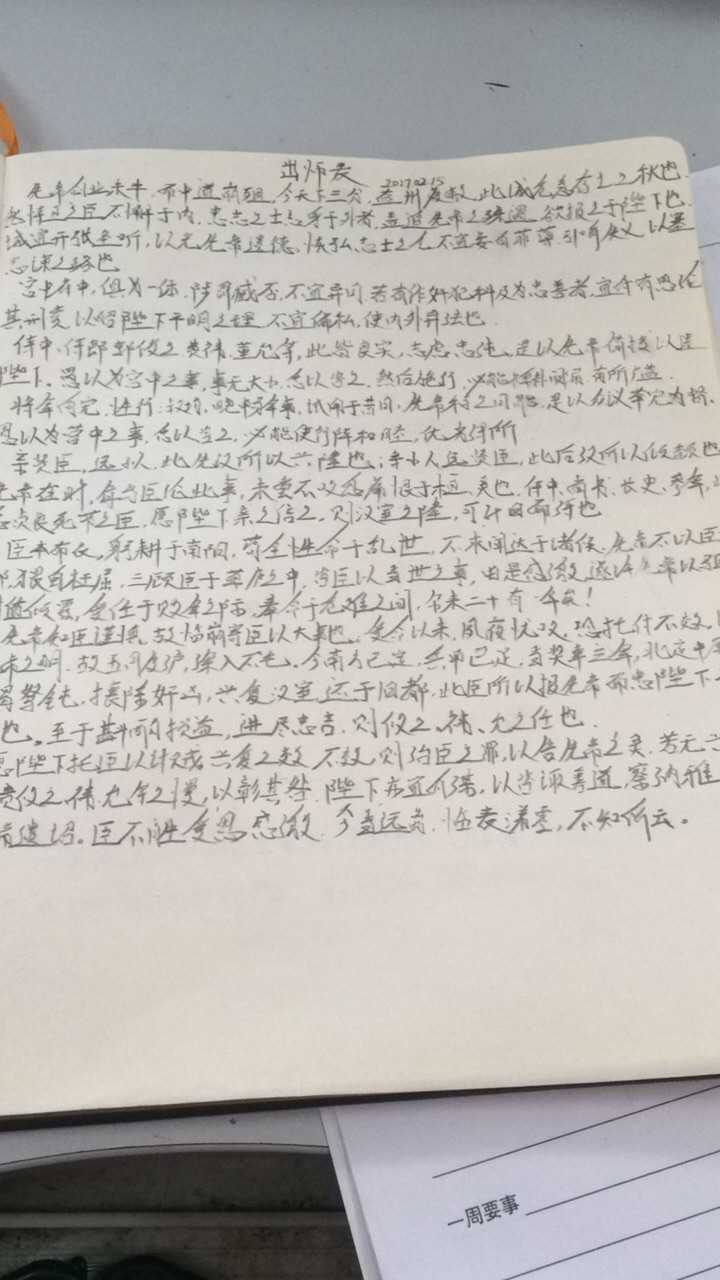 出师表
2017.02.15
先帝创业未半,而中道崩殂,今天下三分,益州疲敝,此诚危急存亡之秋也.
然侍卫之臣不懈于内,忠志之士忘身于外者,盖追先帝之殊遇,欲报之于陛下也.
诚宜开张圣听,以光先帝遗德,恢弘志士之气,不宜妄自菲薄,引喻失义,以塞
忠谏之路也
宫中府中,俱为一体,陟罚臧否,不宜异同.若有作奸犯科及为忠善者,宜付有司论
其刑赏,以昭陛下平明之理,不宜偏私,使内外异法也.
侍中、侍郎郭攸之、费祎、董允等,此皆良实,志虑忠纯,是以先帝简拔以遗
陛下.愚以为宫中之事,事无大小,悉以咨之,然后施行,必能裨补阙漏,有所广益.
将军向宠,性行淑均,晓畅军事,试用于昔日,先帝称之曰能,是以众议举宠为督.
愚以为营中之事,悉以咨之,必能使行阵和睦,优劣得所
亲贤臣,远小人,此先汉所以兴隆也;亲小人,远贤臣,此后汉所以倾颓也
先帝在时,每与臣论此事,未尝不叹息痛恨于桓、灵也.侍中、尚书、长史、参军,此
悉贞良死节之臣,愿陛下亲之信之,则汉室之隆,可计日而待也
臣本布衣,躬耕于南阳,苟全性命于乱世,不求闻达于诸侯.先帝不以臣
鄙,猥自枉屈,三顾臣于草庐之中,咨臣以当世之事,由是感激,遂许先帝以驱
遭倾覆,受任于败军之际,奉命于危难之间,尔来二十有一年矣!
先帝知臣谨慎,故临崩寄臣以大事也.受命以来,夙夜忧叹,恐托付不效,以
帝之明.故五月渡泸,深入不毛.今南方已定,兵甲已足,当奖率三军,北定中原
竭驽钝,攘除奸凶,兴复汉室,还于旧都.此臣所以报先帝而忠陛下之
也。至于斟酌损益,进尽忠言,则攸之、祎、允之任也.
愿陛下托臣以讨贼兴复之效,不效,则治臣之罪,以告先帝之灵.若无兴
责攸之、祎、允等之慢,以彰其咎.陛下亦宜自谋,以咨诹善道,察纳雅
帝遗诏。臣不胜受恩感激.今当远离,临表涕零,不知所云。
一周要事